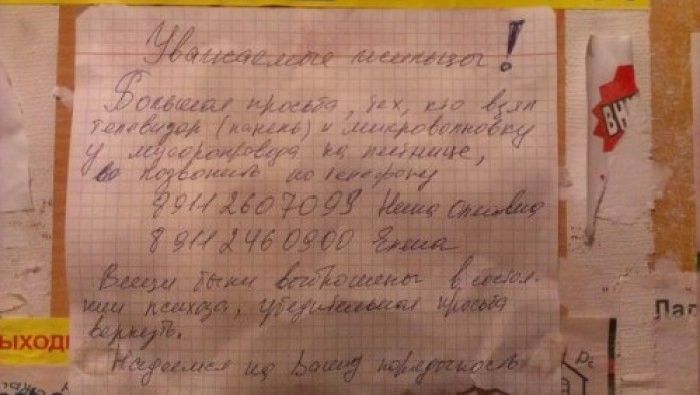 Уважаемые жильцы!
Большая просьба, тех, кто взял
телевизор (панель) и микроволновку
у мусоропровода на лестнице,
позвонить по телефону
89112607099 Нина Олеговна
89112460900 Елена
Вещи были выброшены в состоя-
нии психоза, убедительная просьба
вернуть.
Надеемся на Вашу порядочность
ВН
ыходн
Пал